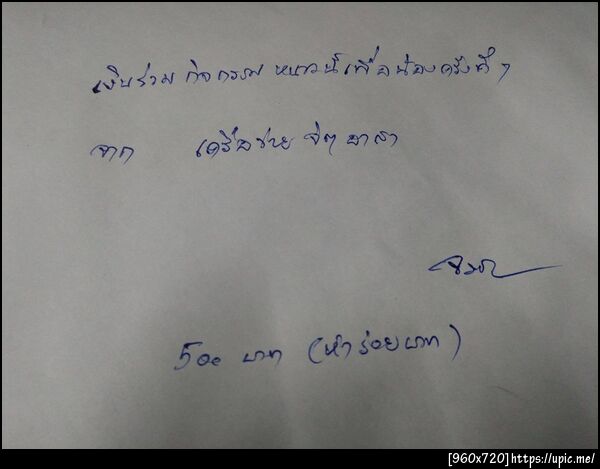 เงินร่วม กิจกรรม หนาวนี้เพื่อน้องครั้งที่ 7
จาก เครือข่าย จิตอาสา
500 บาท (ห้าร้อยบาท)
[960x720]https://upic.me/